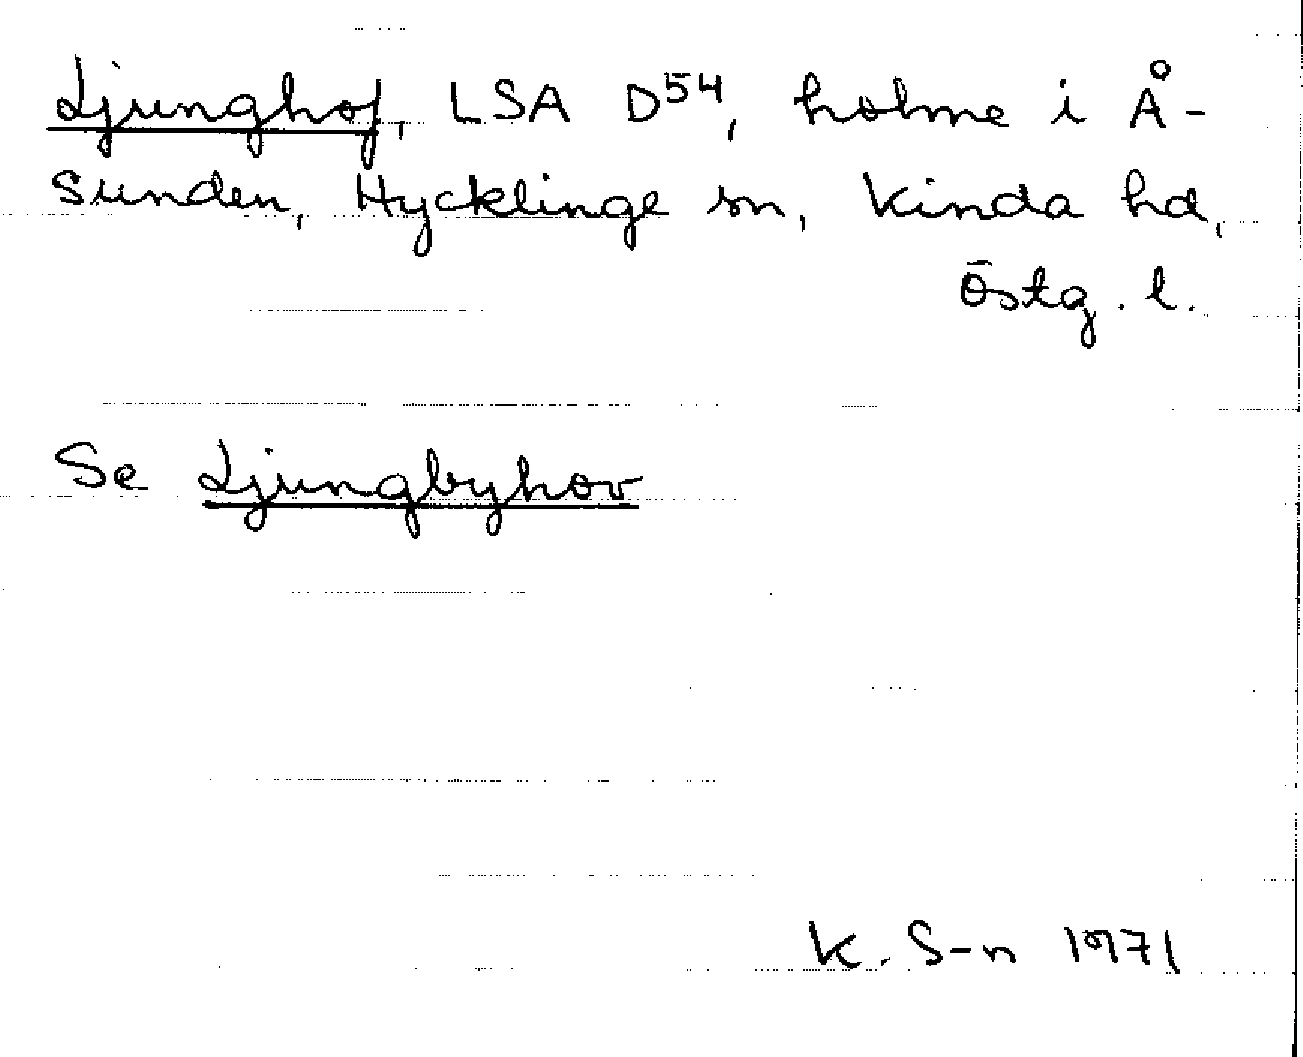 Ljunghof, LSA D54, holme i Å-
sunden, Hycklinge sn, Kinda hd,
Östg. l.
Se Ljungbyhov
K. S-n 1971